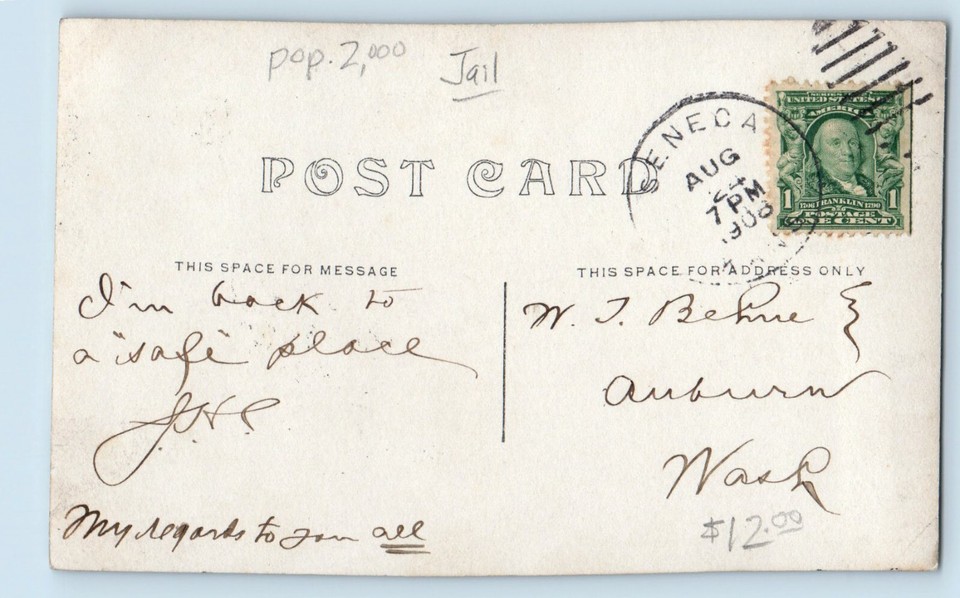 pop. 2,000
Jail
POST CARD
SENECA
AUG
24
7 PM
1908
KANS
SERIES 1902
UNITED STATES OF
AMERICA
1 1
1706 FRANKLIN 1790
POSTAGE
ONE CENT
THIS SPACE FOR MESSAGE
THIS SPACE FOR ADDRESS ONLY
I'm back to
a "safe" place
J.H.C.
My regards to you all
W. T. Behne
Auburn
Wash
$12.00